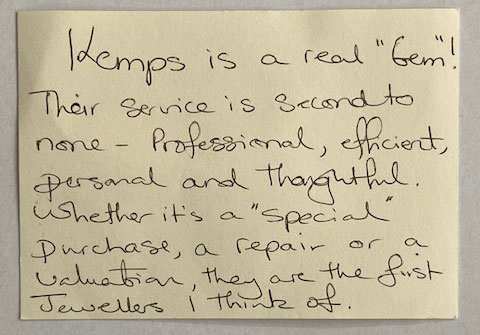 Kemps is a real "Gem"!
Their service is second to
none - Professional, efficient,
personal and thoughtful.
Whether it's a "special"
purchase, a repair or a
valuation, they are the first
Jewellers I think of.